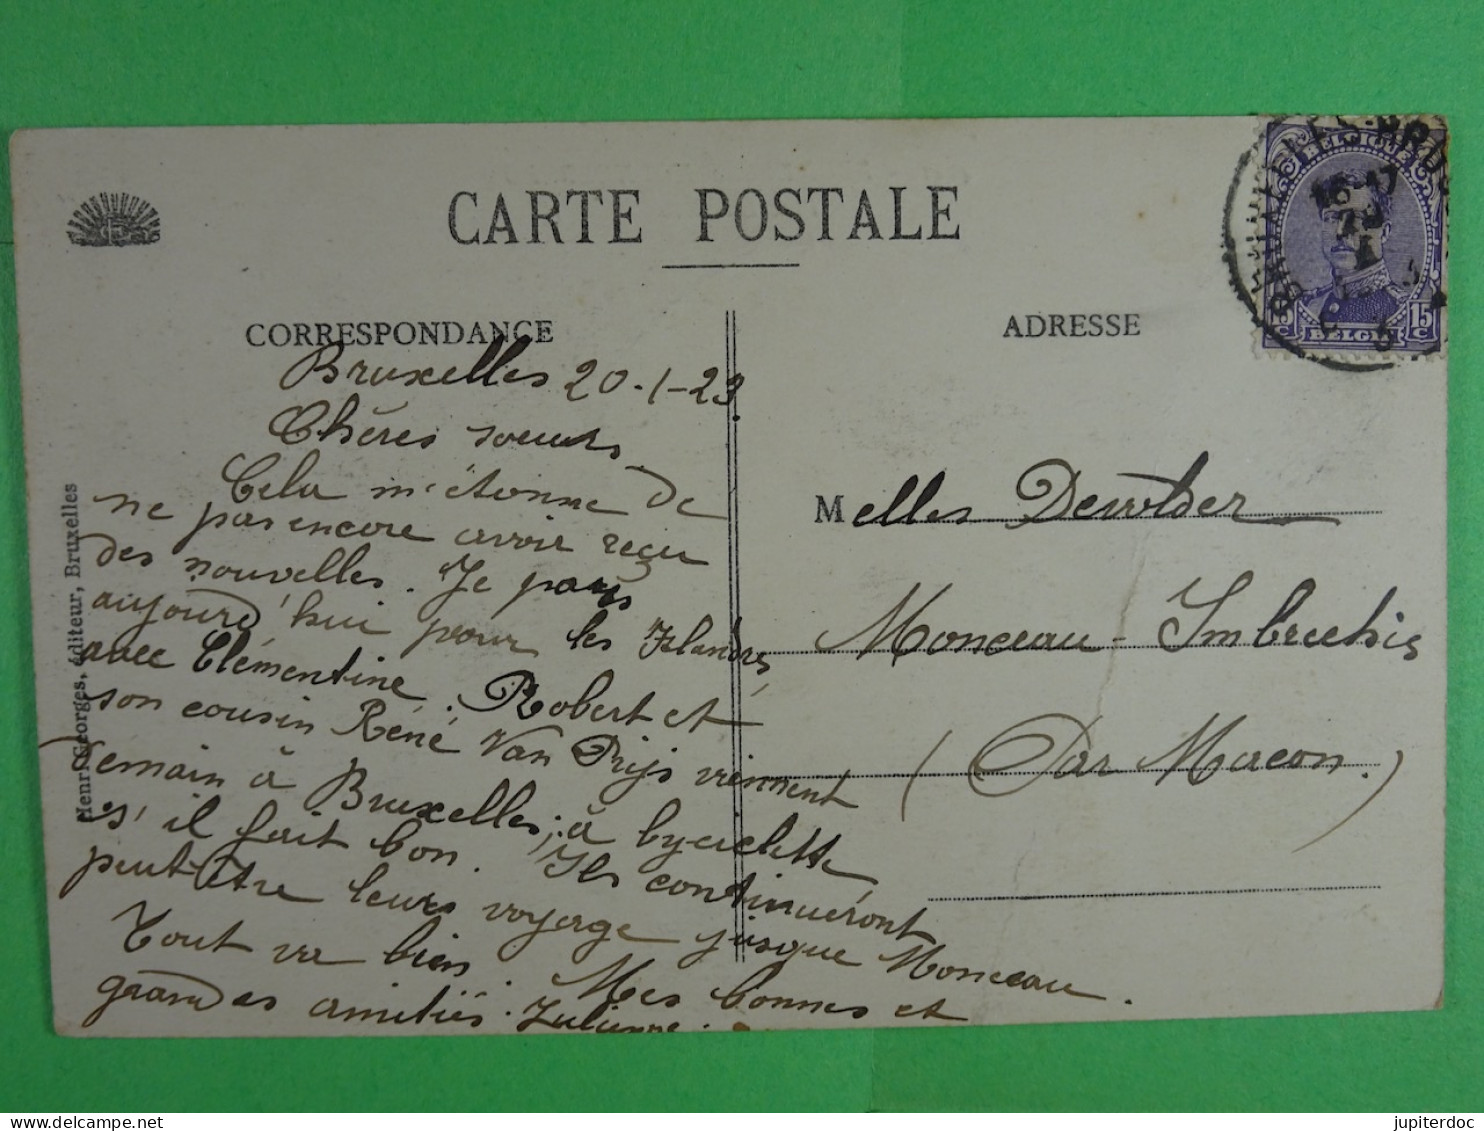 CARTE POSTALE
CORRESPONDANCE
ADRESSE
BELGIQUE
15 C
BELGIË
16-17
Henri Georges, éditeur, Bruxelles
Bruxelles 20-1-23.
Chères soeurs
Cela m'étonne de
ne pas encore avoir reçu
des nouvelles. Je pars
aujourd'hui pour les Flandres
avec Clémentine. Robert et
son cousin Réné Van Prijs viennent
demain à Bruxelles, à byciclette
s'il fait bon. Ils continueront
peut-être leurs voyage jusque Monceau.
Tout va bien. Mes bonnes et
grandes amitiés. Julienne.
Melles Dewolder
Monceau-Imbrechies
(Par Macon.)
www.delcampe.net
jupiterdoc